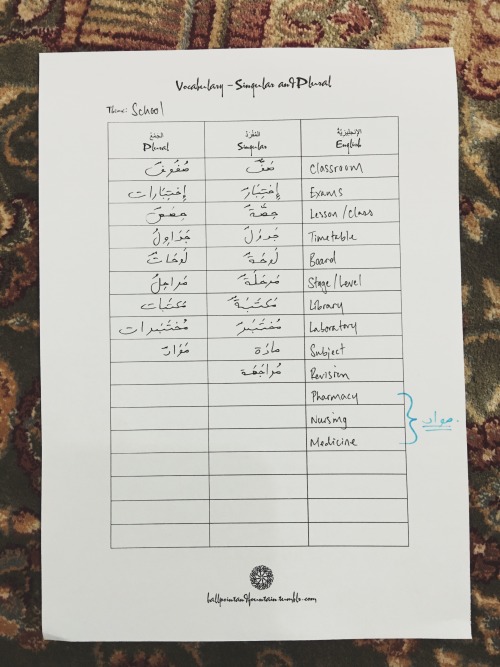 Vocabulary - Singular and Plural
Theme: School
الجَمْعُ المُفْرَدُ الإنجليزيّة
Plural Singular English
صُفُوفٌ صَفٌّ Classroom
إِخْتِبَارَات إِخْتِبَارٌ Exams
حِصَصٌ حِصَّةٌ Lesson/Class
جَدَاوِلُ جَدْوَلٌ Timetable
لَوْحَاتٌ لَوْحَةٌ Board
مَرَاحِلُ مَرْحَلَةٌ Stage/Level
مَكْتَبَات مَكْتَبَةٌ Library
مُخْتَبَرَات مُخْتَبَرٌ Laboratory
مَوَادٌ مادَة Subject
مُرَاجَعَة Revision
Pharmacy
Nursing
مواد.
Medicine
ballpointandfountain.tumblr.com